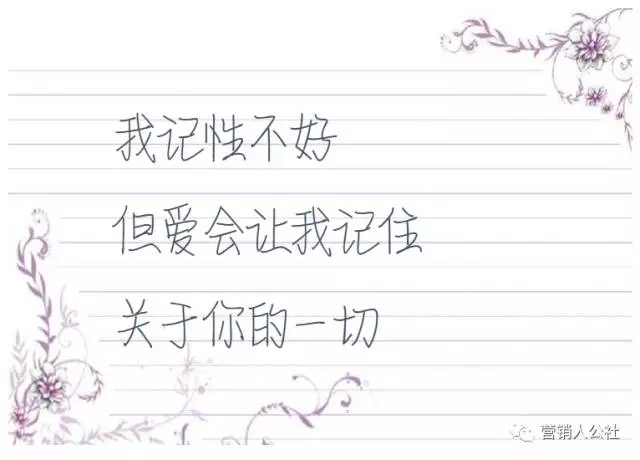 我记性不好
但爱会让我记住
关于你的一切
营销人公社